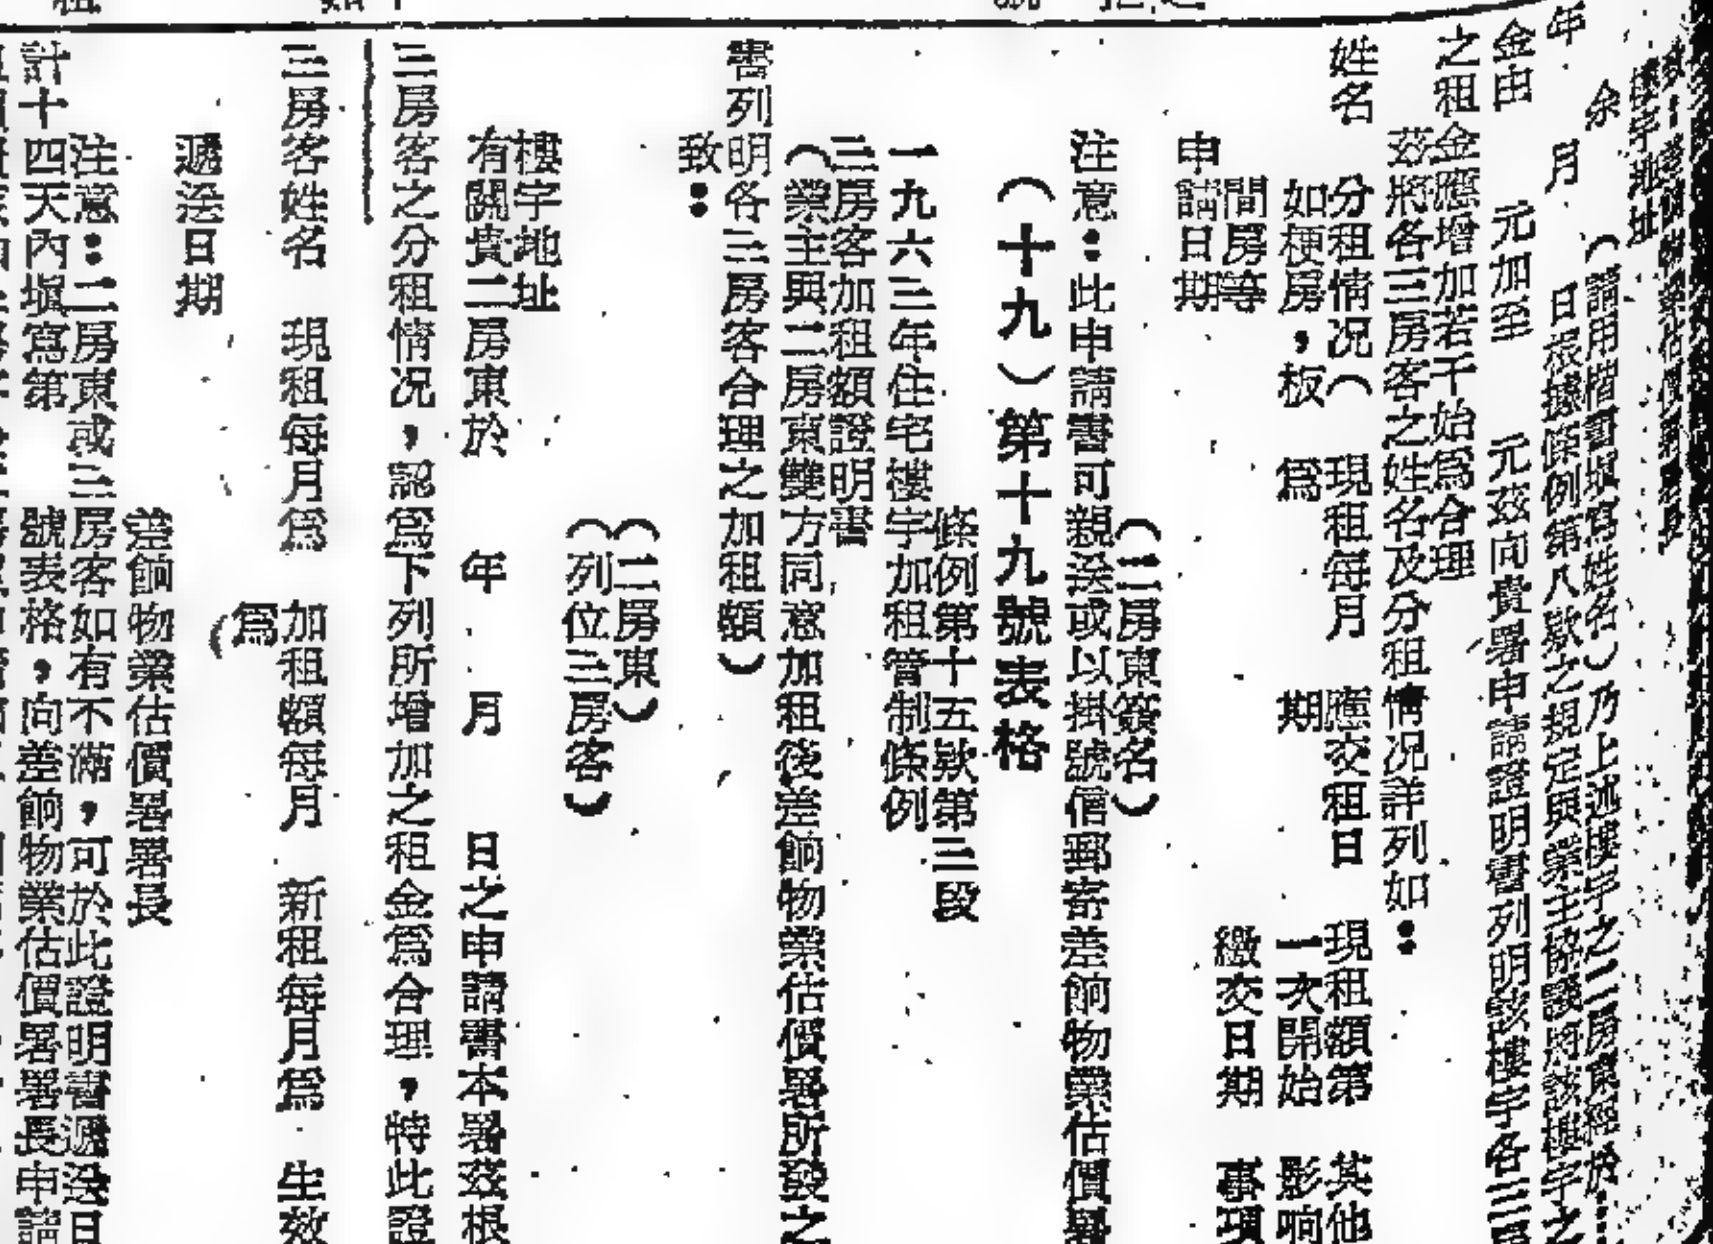 樓宇地址
余　（請用楷書塡寫姓名）乃上述樓宇之二房東經於
年　月　日根據條例第八欵之規定與業主協議將該樓宇之
金由　元加至　元茲向貴署申請證明書列明該樓宇各三房
之租金應增加若干始爲合理
茲將各三房客之姓名及分租情况詳列如：
姓名　分租情况（　現租每月　應交租日　現租額第　其他
如梗房，板　爲　期　一次開始　影响
間房等　繳交日期　事項
申請日期
（二房東簽名）
注意：此申請書可親送或以掛號信郵寄差餉物業估價署
（十九）第十九號表格
條例第十五欵第三段
一九六三年住宅樓宇加租管制條例
三房客加租額證明書
（業主與二房東雙方同意加租後差餉物業估價署所發之
書列明各三房客合理之加租額）
致：
（二房東）
（列位三房客）
樓宇地址
有關貴二房東於　年　月　日之申請書本署茲根
三房客之分租情况，認爲下列所增加之租金爲合理，特此證
三房客姓名　現租每月爲　加租額每月　新租每月爲　生效
爲　（
遞送日期
差餉物業估價署署長
注意：二房東或三房客如有不滿，可於此證明書遞送日
計十四天內塡寫第　號表格，向差餉物業估價署署長申請